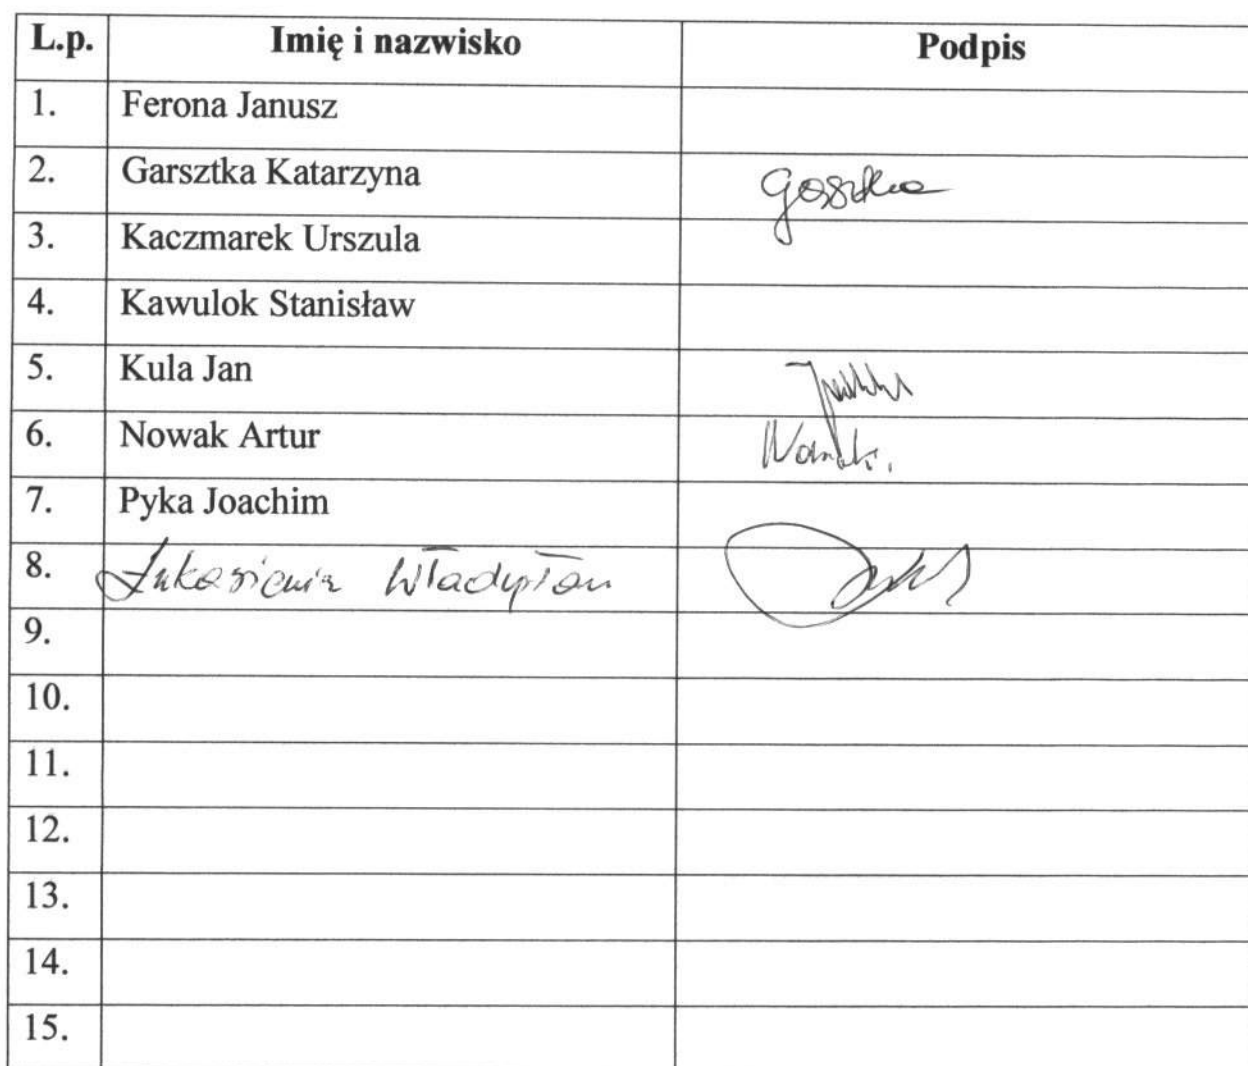 L.p. Imię i nazwisko Podpis
1. Ferona Janusz
2. Garsztka Katarzyna
3. Kaczmarek Urszula
4. Kawulok Stanisław
5. Kula Jan
6. Nowak Artur
7. Pyka Joachim
8. Władysław
9.
10.
11.
12.
13.
14.
15.